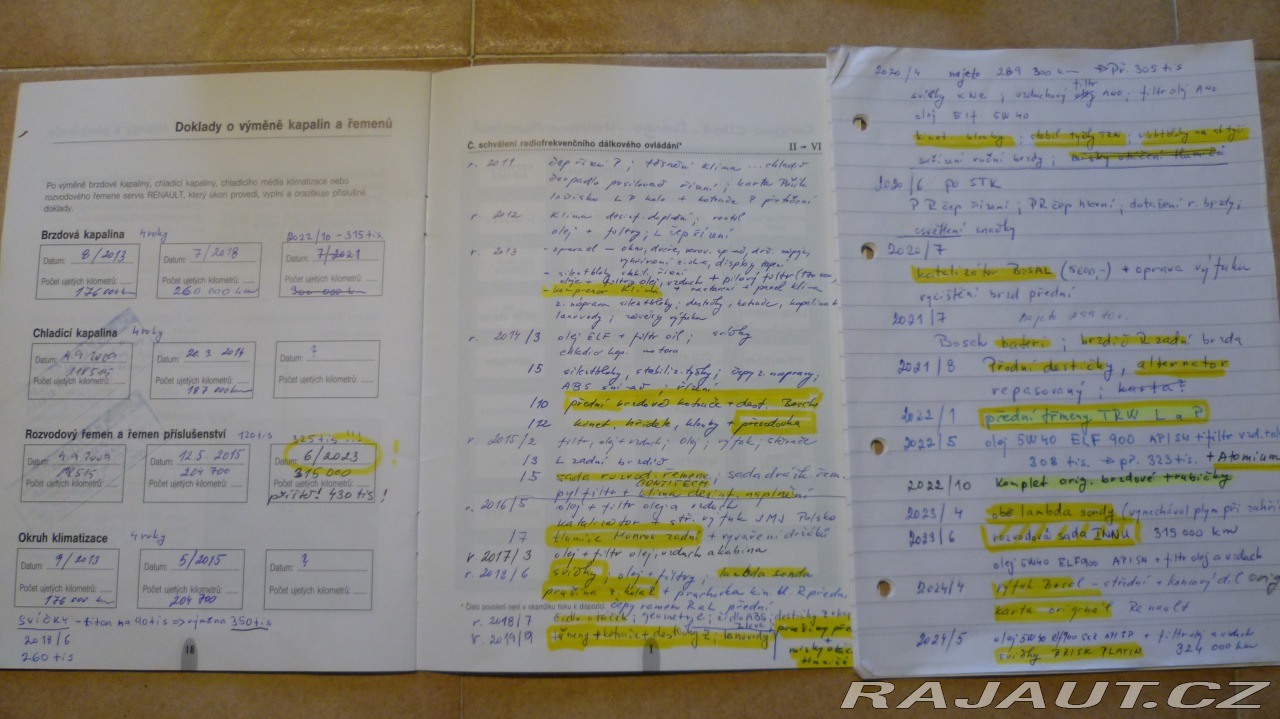 Doklady o výměně kapalin a řemenů
Po výměně brzdové kapaliny, chladicí kapaliny, chladicího média klimatizace nebo
rozvodového řemene servis RENAULT, který úkon provedl, vyplní a orazítkuje příslušné
doklady.
Brzdová kapalina 4 roky
2022/10 - 315 tis.
Datum: 8/2013
Datum: 7/2018
Datum: 7/2021
Počet ujetých kilometrů:
Počet ujetých kilometrů:
Počet ujetých kilometrů:
176 000 km
260 000 km
300 000 km
Chladicí kapalina 4 roky
Datum: 4.9.2009
Datum: 20.3. 2014
?
Datum:
Počet ujetých kilometrů:
Počet ujetých kilometrů:
Počet ujetých kilometrů:
187 000 km
Rozvodový řemen a řemen příslušenství 120 tis
325 tis !!!
Datum: 4.9.2009
Datum: 12.5. 2015
Datum: 6/2023 !
204 700
315 000
Počet ujetých kilometrů:
Počet ujetých kilometrů:
Počet ujetých kilometrů:
příště! 430 tis!
Okruh klimatizace 4 roky
Datum: 9/2013
Datum: 5/2015
?
Datum:
Počet ujetých kilometrů:
Počet ujetých kilometrů:
Počet ujetých kilometrů:
176 000 km
204 700
svíčky - titan na 90 tis => výměna 350 tis
2018/6
260 tis
18
Č. schválení radiofrekvenčního dálkového ovládání* II – VI
r. 2011 čep řízení P; těsnění klima ... chladič
čerpadlo posilovač řízení; karta
ložisko L P kolo + kotouče P přetočení
r. 2012 klima desinf. doplnění; ventil
olej + filtry; L čep řízení
r. 2013
- silentbloky stabil. řízení
olej + filtry olej, vzduch + pilový filtr
- kompresor klima + nastavení + panel klima
z. náprava silentbloky; destičky, kotouče, kapalina b
lanovody; závěsy výfuku
r. 2014/3 olej ELF + filtr oil; svíčky
chladicí kap. motoru
/5 silentbloky, stabiliz. tyčky; čepy z. nápravy;
ABS snímač; řízení
/10 přední brzdové kotouče + dest. Bosch
/12 homok. hřídelk, klouby + převodovka
r. 2015/2 filtr, olej + vzduch; olej; výfuk,
/3 L zadní brzdič
/5 sada rozvod. řemene, sada drážk. řem.
CONTITECH
pyl filtr + klima desinf. naplnění
r. 2016/5 olej + filtr oleje a vzduch
katalizátor + stř. výfuk JMJ Polsko
/7 tlumiče Monroe zadní + vyvaření držáků
r. 2017/3 olej + filtr olej, vzduch a kabina
r. 2018/6 svíčky, olej + filtry; lambda sonda
pružina z. kolač + pruchodka
* Číslo povolení není v okamžiku tisku k dispozici. čepy ramen R a L přední
r. 2018/7 čidlo; geometrie; čidlo ABS; destičky
r. 2019/9 třmeny + kotouče + destičky Z, lanovody
pružiny pře
+
misky
tlumičů
1
2020/4 najeto 289 300 km → Př. 305 tis
filtr
svíčky; vzduchový ANO; filtr olej ANO
olej Elf 5W40
stabil tyčky TRW
seřízení ruční brzdy; misky otočení tlumičů
2020/6 po STK
P R čep řízení; PR čep hlavní; dotažení r. brzdy;
osvětlení značky
2020/7
katalizátor BOSAL (5000,-) + oprava výfuku
vyčištění brzd přední
2021/7 najeto 299 tis.
Bosch baterie; brzdič R zadní brzda
2021/8 Přední destičky, alternátor
repasovaný; karta?
2022/1 přední třmeny TRW L a P
2022/5 olej 5W40 ELF 900 API SN + filtr vzd. + olej
308 tis. → př. 323 tis. + Atomium
2022/10 komplet orig. brzdové trubičky
2023/4 obě lambda sondy (vynechával plyn při
2023/6 rozvodová sada INNU 315 000 km
olej 5W40 ELF900 API SN + filtr olej a vzduch
2024/4 výfuk Bosal - střední + koncový díl orig
karta originál Renault
2024/5 olej 5W40 Elf900 API SP + filtr olej a vzduch
svíčky BRISK PLATIN 324 000 km
RAJAUT.CZ